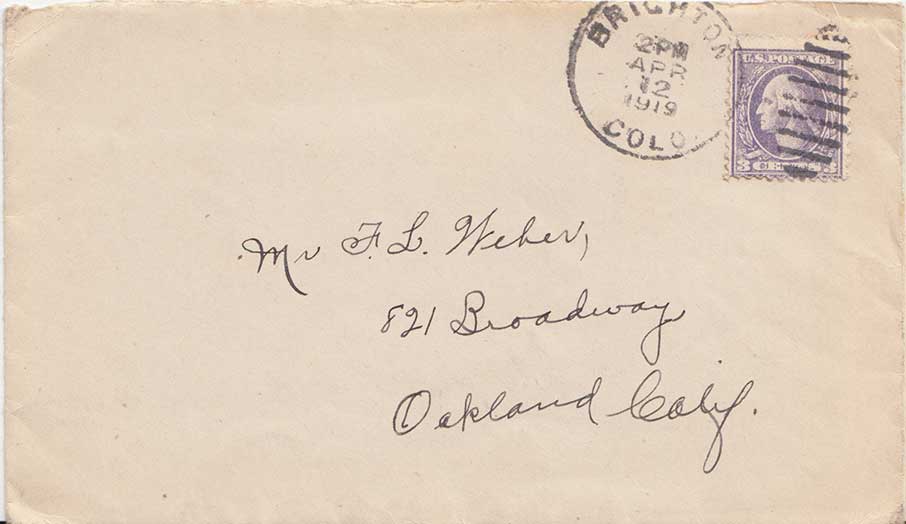 BRIGHTON
2PM
APR
12
1919
COLO.
U.S. POSTAGE
3 CENTS 3
Mr F. L. Weber,
821 Broadway
Oakland Calif.